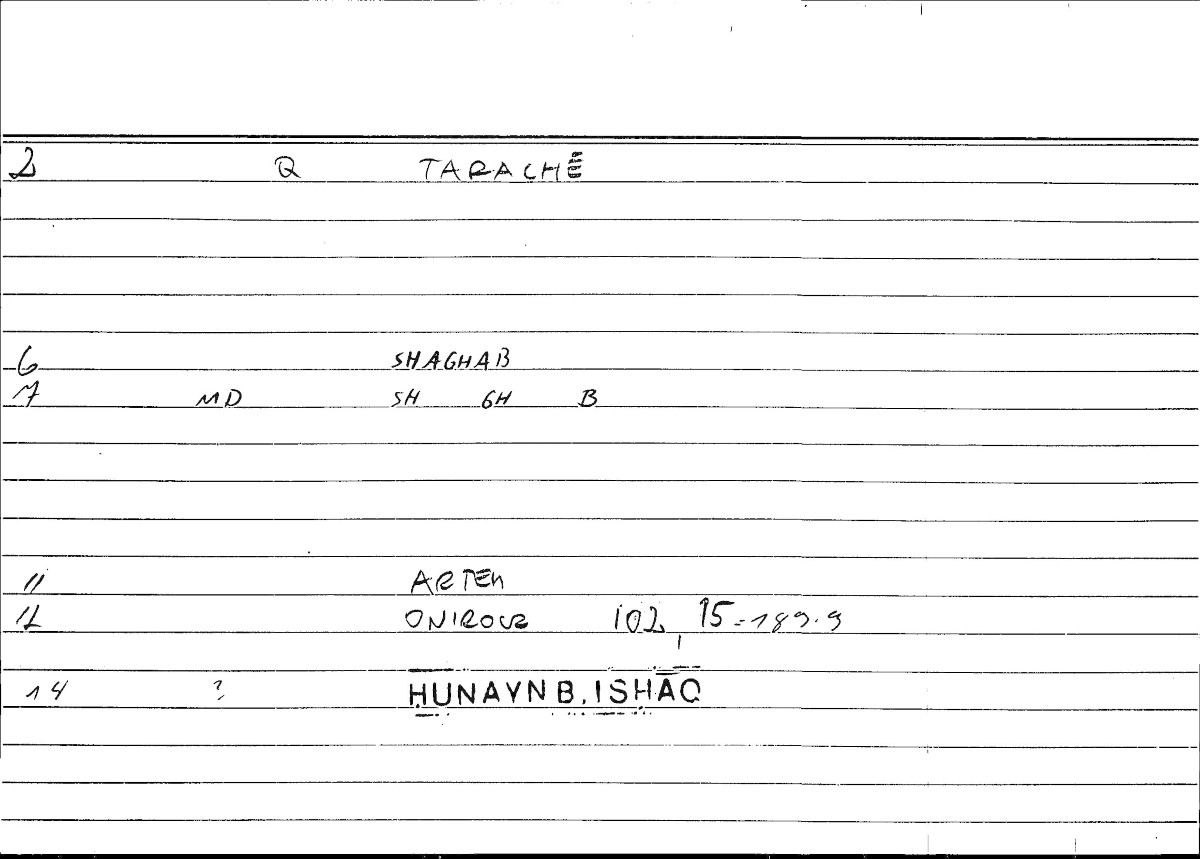 2 Q TARACHĒ
6 SHAGHAB
7 MD SH GH B
11 ARTEM
12 ONIROCR 102, 15-189.9
14 ? HUNAYN B. ISHAQ